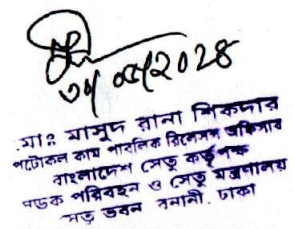 ৩০/০৫/২০২৪
মোঃ মাসুদ রানা শিকদার
প্রটোকল কাম পাবলিক রিলেশন্স অফিসার
বাংলাদেশ সেতু কর্তৃপক্ষ
সড়ক পরিবহন ও সেতু মন্ত্রণালয়
সেতু ভবন বনানী, ঢাকা